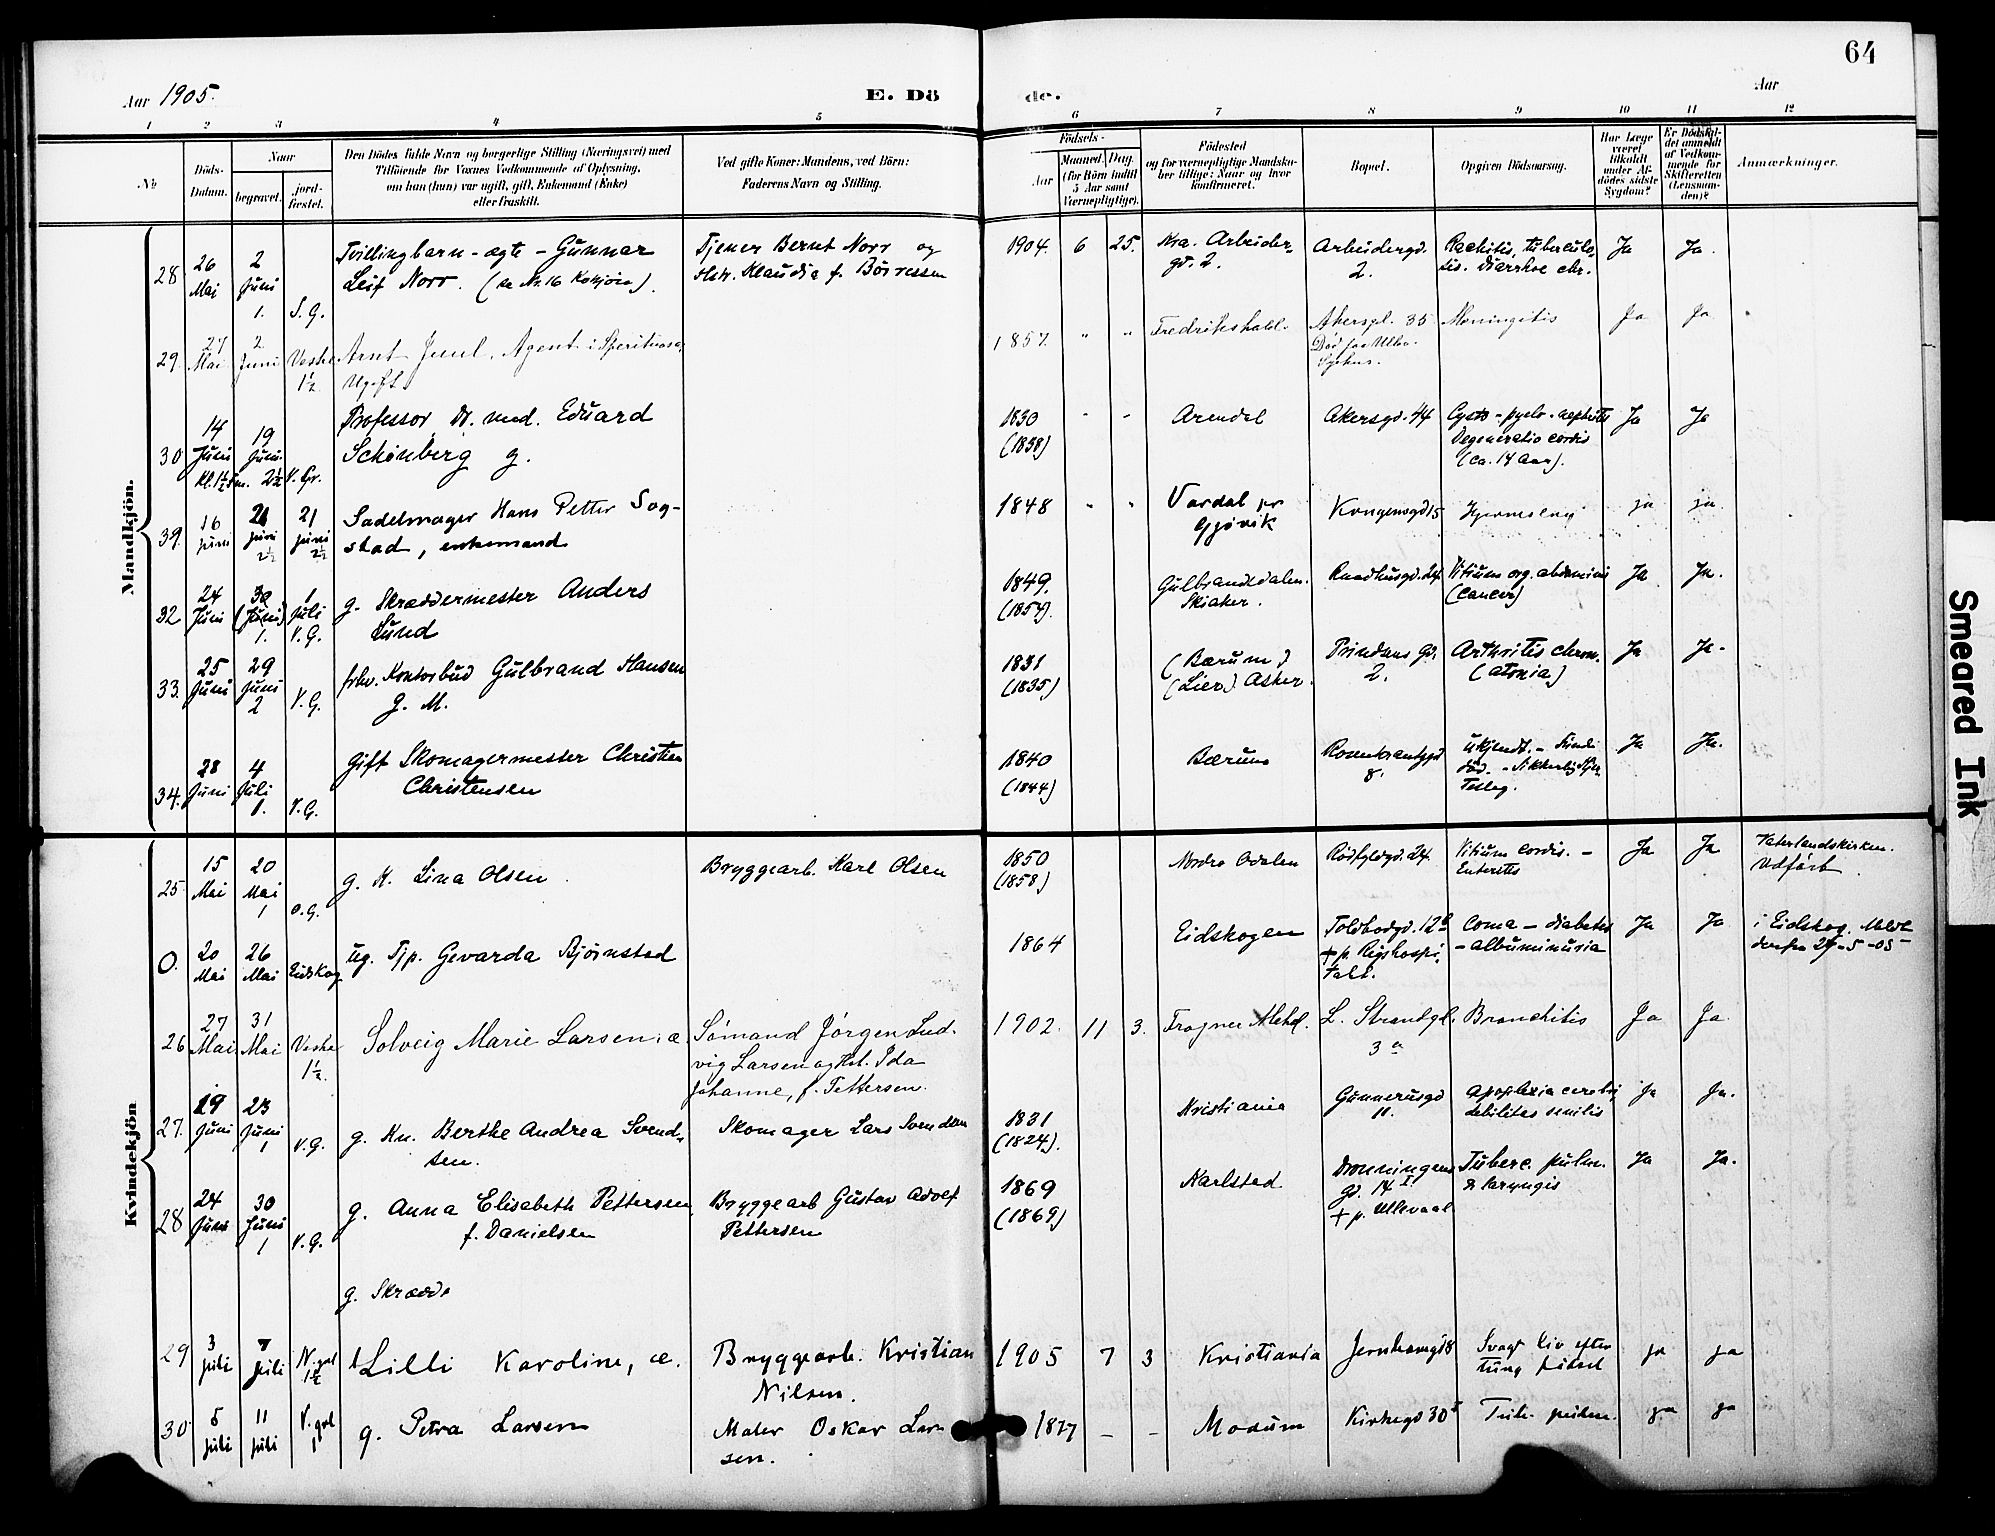 64
Aar 1905.
E. Dö
de.
Aar
1 2 3 4 5 6 7 8 9 10 11 12
No
Döds-
Datum.
Naar
begravet.
jord-
fæstet.
Den Dödes fulde Navn og borgerlige Stilling (Næringsvei) med
Tilföiende for Voxnes Vedkommende af Oplysning,
om han (hun) var ugift, gift, Enkemand (Enke)
eller fraskilt.
Ved gifte Koner: Mandens, ved Börn:
Faderens Navn og Stilling.
Födsels-
Aar
Maaned. Dag.
(for Börn indtil
5 Aar samt
Værnepligtige).
Födested
og for værnepligtige Mandskaber tillige: Naar og hvor
konfirmeret.
Bopæl.
Opgiven Dödsaarsag.
Har Læge
været
tilkaldt
under Afdödes sidste
Sygdom?
Er Dödsfaldet anmeldt
af Vedkommende for
Skifteretten
(Lensmanden)?
Anmærkninger.
Mandkjön.
28 26 Mai 2 Juni 1. S. G.
Tvillingbarn - ægte - Gunnar
Leif Norr. (se Nr. 16 Kvkjön).
Tjener Bernt Norr og
Hstr. Klaudia f. Börresen
1904. 6 25. Kra. Arbeider-
gd. 2.
Arbeidergd.
2.
Rachitis, tuberculo-
sis. Diarrhoe chr.
Ja Ja.
29. 27 Mai 2 Juni Vestre 1½.
Arnt Juul, Agent i Spirituosa,
Ugift
1857. " " Fredrikshald.
Akerspl. 35
Död paa Ullev.
Sygehus.
Meningitis
Ja Ja
30 14 Juni 19 Juni 2½ V. Gr.
Professor Dr. med. Eduard
Schönberg g.
1830
(1838)
" " Arendal
Akersgd. 44
Cysto-pyelo-nephritis
Degeneratio cordis
(ca. 14 Aar).
Ja Ja
39. 16 juni 21 juni 2½ 21 juni 2½
Sadelmager Hans Petter Sog-
stad, enkemand
1848 " " Vardal pr
Gjövik
Kongensgd 15
ja ja.
32 24 Juni 30 (Juni) 1. 1 Juli V. G.
g. Skræddermester Anders
Lund
1849.
(1854).
Gulbrandsdalen.
Skiaker.
Raadhusgd. 24.
Vitium org. abdominis
(Cancer)
Ja Ja.
33. 25 Juni 29 Juni 2 V. G.
frhv. Kontorbud Gulbrand Hansen
G. M.
1831
(1835)
(Bærum)
(Lier) Asker.
Prindsens Gd.
2.
Arthritis chron.
(atonia)
Ja Ja.
34. 28 Juni 4 Juli 1. V. G.
Gift Skomagermester Christian
Christensen
1840
(1844)
Bærum
Rosenkrantzgd
8.
Ukjendt. -
död. - Sikkerlig Hjer-
teslag.
Ja Ja.
Kvindekjön
25. 15 Mai 20 Mai 1 O. G.
g. K. Lina Olsen.
Bryggearb. Karl Olsen
1850
(1858)
Nordre Odalen
Rödfyldgd. 24.
Vitium cordis. -
Enteritis
Ja Ja
Vaterlandskirken.
Udfört.
O. 20 Mai 26 Mai Eidskog
ug. Tjp. Gevarda Bjørnstad
1864
Eidskogen
Toldbodgd. 12
+ p. Rigshospi-
talt.
Coma - diabetes
- albuminuria
Ja Ja
i Eidskog. Meldt
derfra 27-5-05
26 27 Mai 31 Mai Vestre 1½.
Solveig Marie Larsen, æ.
Sömand Jörgen Lud-
vig Larsen og Hst. Ida
Johanne, f. Pettersen.
1902. 11 3. Frogner Mhd.
L. Strandgd.
3 a
Bronchitis
Ja Ja.
27. 19 Juni 23 Juni 1 V. G.
g. Kn. Berthe Andrea Svend-
sen.
Skomager Lars Svendsen
1831
(1824).
Kristiania
Gunnerusgd
11.
Apoplexia cerebri
debilitas senilis
Ja Ja.
28 24 Juni 30 Juni 1 V. G.
g. Anna Elisabeth Pettersen
f. Danielsen
Bryggearb Gustav Adolf
Pettersen
1869
(1869)
Karlstad.
Dronningens
gd. 14 I
+ p. Ullevaal
Tuberc. pulm.
& laryngis
Ja Ja.
g. Skrædde
29 3 juli 7 juli N. gvl 1½
Lilli Karoline, æ.
Bryggearb. Kristian
Nilsen.
1905 7 3 Kristiania
Jernbanegd 8
Svagt Liv efter
tung födsel
ja ja
30 5 juli 11 juli V. gvl 1
g. Petra Larsen
Maler Oskar Lar-
sen.
1877 - - Modum
Kirkegd 30 I
Tub. pulm.
ja ja
Smeared Ink